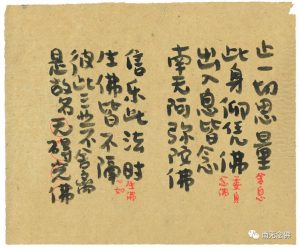 止一切思量
此身仰凭佛
委身
念佛
出入息皆念
南无阿弥陀佛
信乐此法时
生佛
生佛皆不隔
一如
彼此三业不舍离
是故名无碍光佛
南无念佛